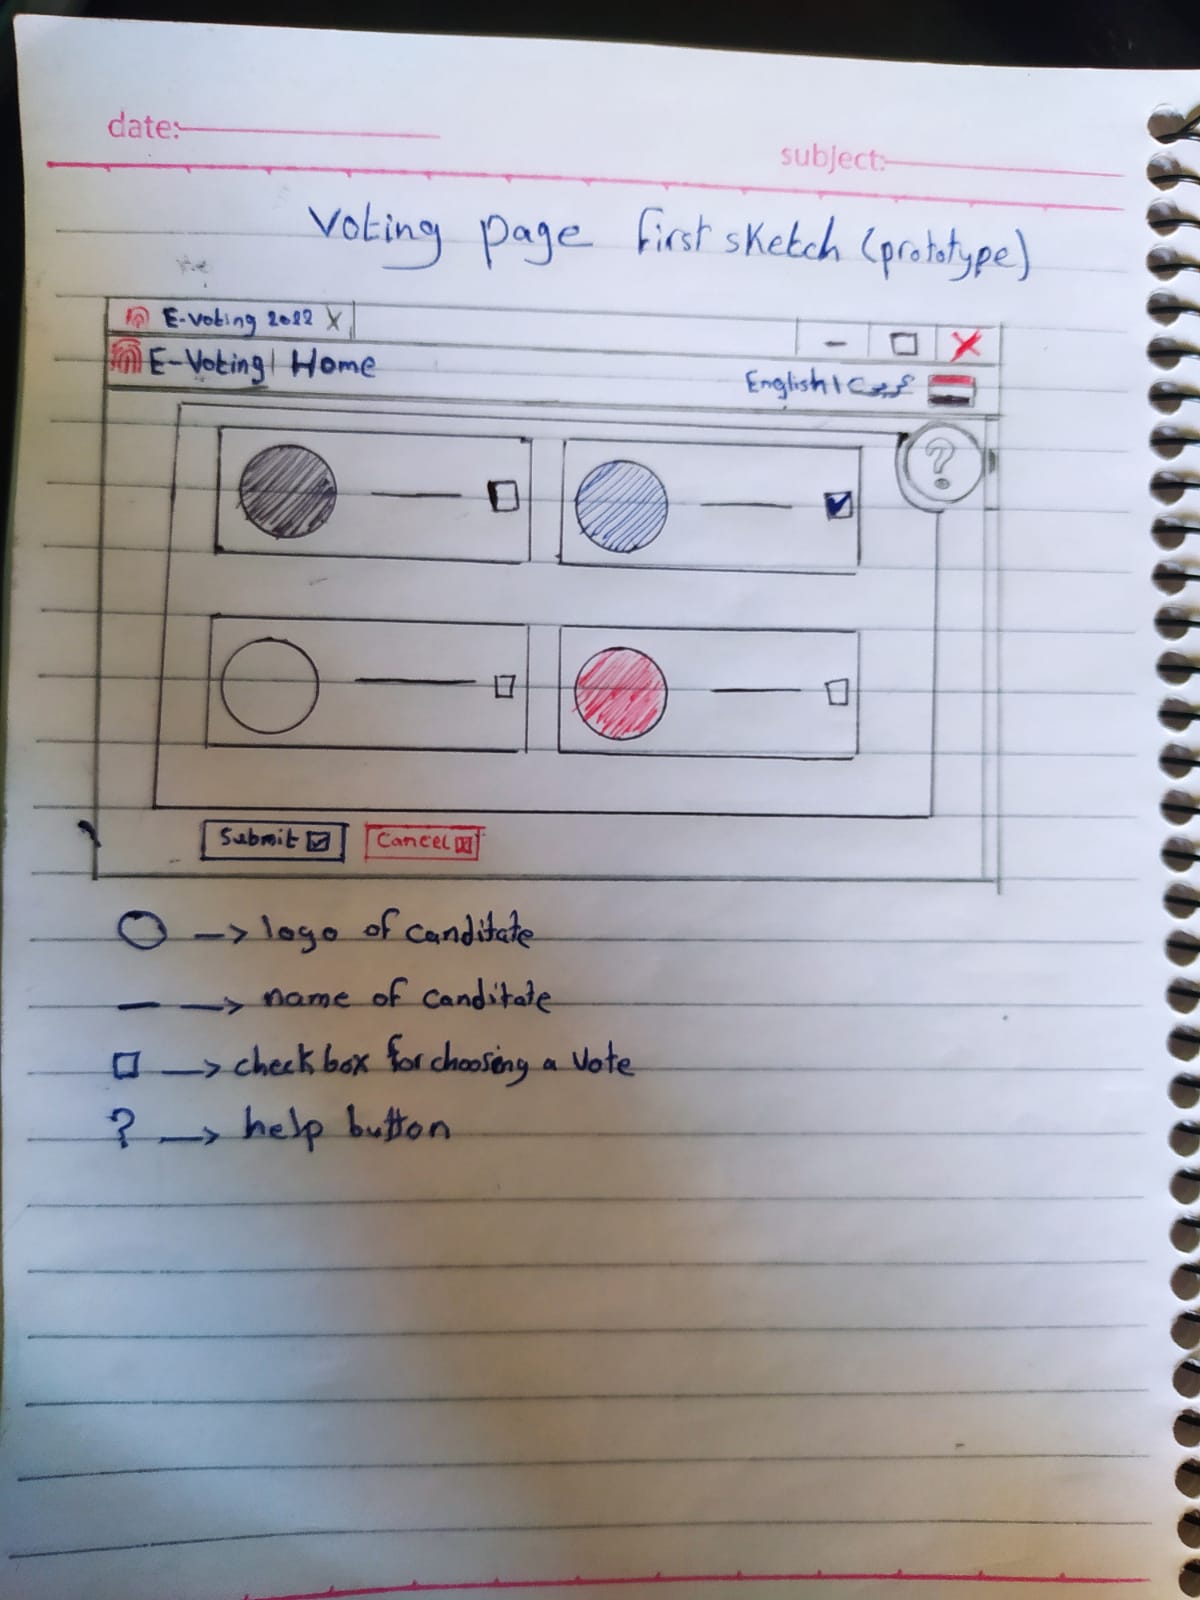 date:
subject:
Voting page first sketch (prototype)
E-voting 2022 X
E-Voting | Home
English | عربي
?
Submit
Cancel
logo of canditate
name of canditate
check box for choosing a vote
? help button